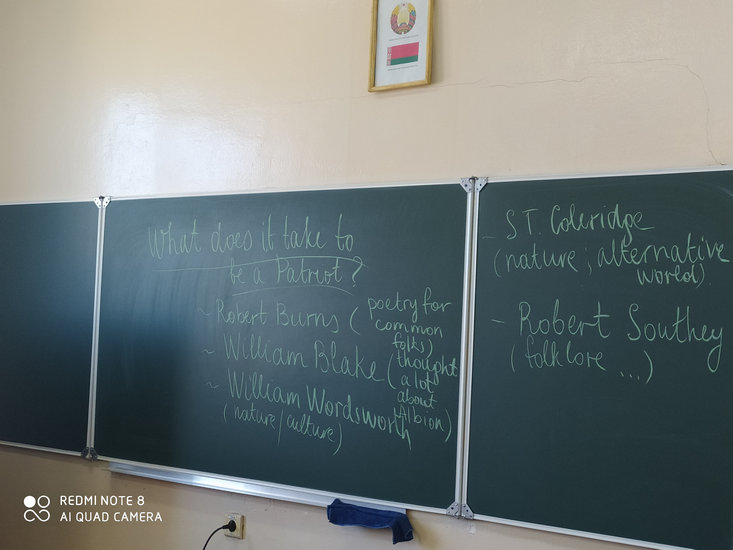 What does it take to
be a Patriot?
~ Robert Burns (poetry for
common
folks)
~ William Blake (thought
a lot
about
Albion)
~ William Wordsworth
(nature/culture)
- S.T. Coleridge
(nature; alternative
world)
- Robert Southey
(folklore ...)
REDMI NOTE 8
AI QUAD CAMERA